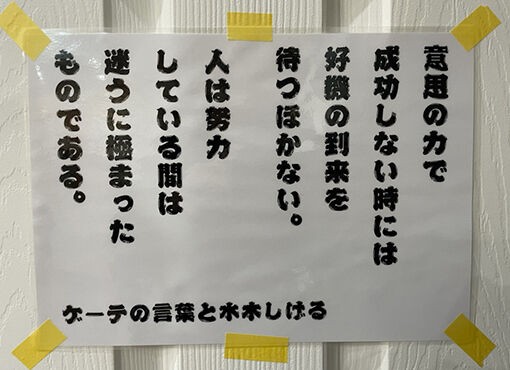 意思の力で
成功しない時には
好機の到来を
待つほかない。
人は努力
している間は
迷うに極まった
ものである。
ゲーテの言葉と水木しげる